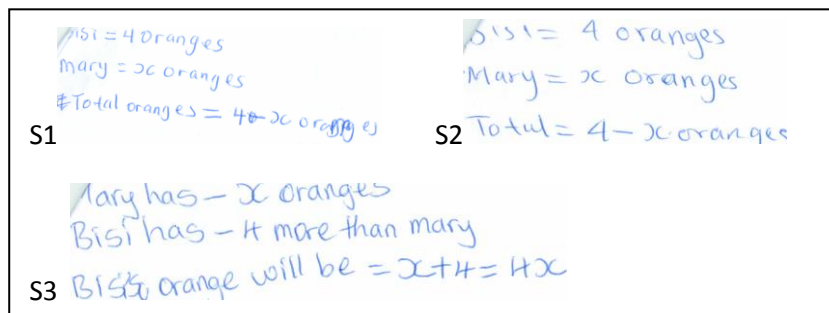 Bisi = 4 oranges
Mary = x oranges
Total oranges = 4 - x oranges
S1
Bisi = 4 oranges
Mary = x oranges
S2 Total = 4 - x oranges
Mary has - x oranges
Bisi has - 4 more than mary
S3 Bisi's orange will be = x+4 = 4x